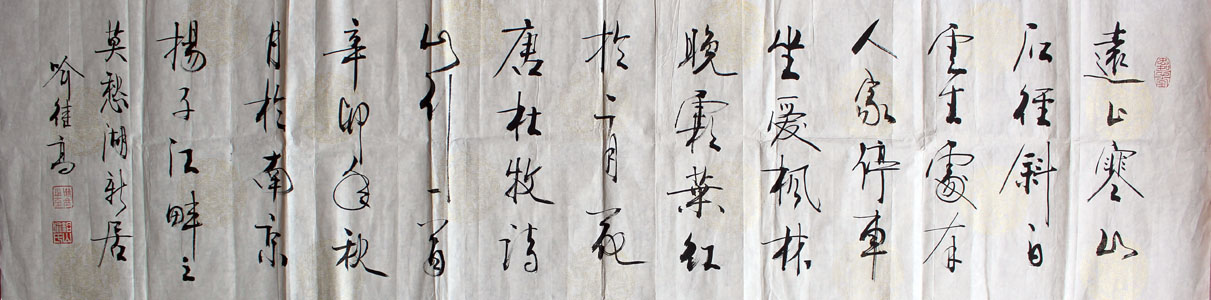 遠上寒山
石徑斜白
雲生處有
人家停車
坐愛楓林
晚霜葉紅
於二月花
唐杜牧詩
山行一首
辛卯年秋
月於南京
揚子江畔之
莫愁湖新居
高